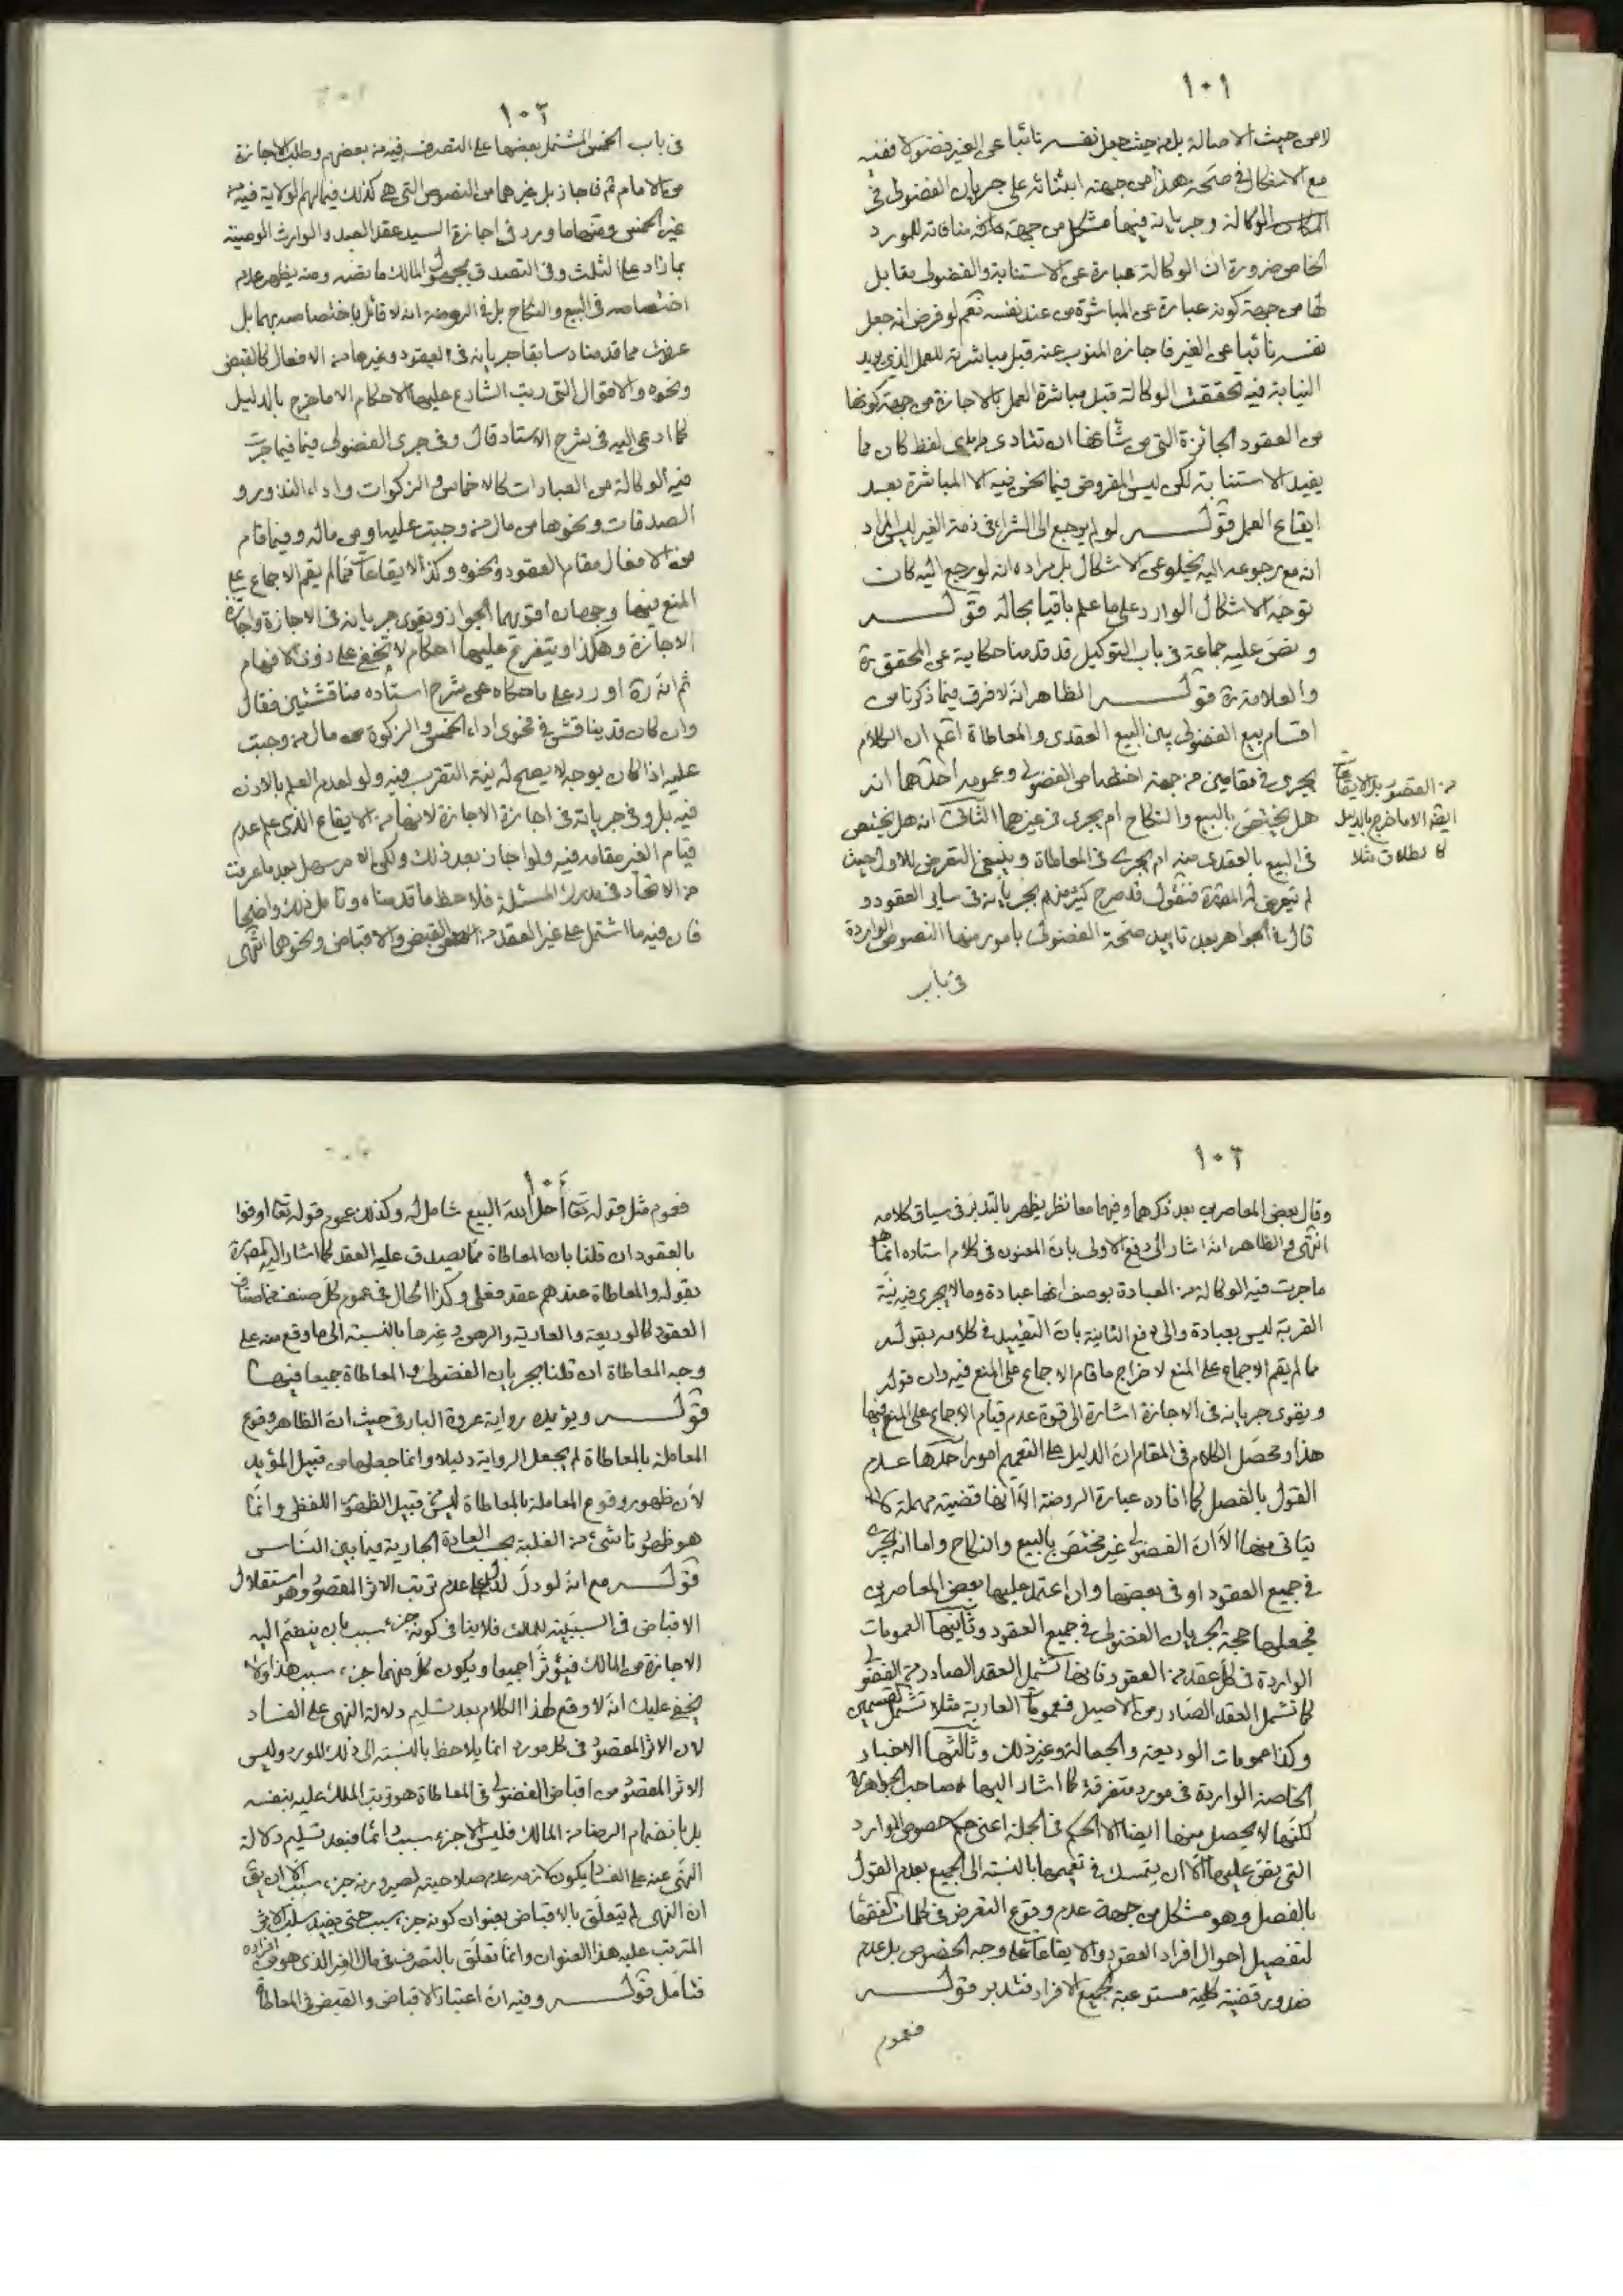 ١٠١
لا من حيث الاصالة بل من حيث جعل نفسه نائبا عن الغير فضولا ففيه
مع الاشكال في صحة هذا من جهة ابتنائه على جريان الفضولى فى
الوكالة وجريانه فيها مشكل من جهة منافاته للمورد
الخاص ضرورة ان الوكالة عبارة عن الاستنابة والفضولى مقابل
لها من جهة كونه عبارة عن المباشرة من عند نفسه نعم لو فرض انه جعل
نفسه نائبا عن الغير فاجازه المنوب عنه قبل مباشرته للعمل الذى يريد
النيابة فيه تحققت الوكالة قبل مباشرة العمل بالاجازة من جهة كونها
من العقود الجائزة التى من شأنها ان تتادى باى لفظ كان مما
يفيد الاستنابة لكن ليس المفروض فيما نحن فيه الا المباشرة بعد
ايقاع العمل قوله لو لم يرجع الى الشراء فى ذمة الغير ليس المراد
انه مع رجوعه اليه يخلو عن الاشكال بل مراده انه لو رجع اليه كان
توجه الاشكال الوارد على ما علم باقيا بحاله قوله
ونص عليه جماعة فى باب التوكيل قد قدمنا حكاية عن المحقق ره
والعلامة ره قوله الظاهر انه لا فرق فيما ذكرنا من
اقسام بيع الفضولى بين البيع العقدى والمعاطاة اعلم ان الكلام
يجرى فى مقامين من جهة اختصاص الفضولى وعمومه احدهما انه
هل يختص بالبيع والنكاح ام يجرى فى غيرهما الثانى انه هل يختص
فى البيع بالعقدى منه ام يجرى فى المعاطاة وينبغى التعرض للاول حيث
لم يتعرض له المصنف ره فنقول قد صرح كثير منهم بجريانه فى ساير العقود و
قال فى الجواهر بعد تاييد صحة الفضولى بامور منها النصوص الواردة
فى باب
من العقود بل الايقاعات
ايضا الا ما خرج بالدليل
كالطلاق مثلا
١٠٢
فى باب الخمس المشتمل بعضها على التصرف فيه من بعضهم وطلب الاجازة
من الامام ثم فاجاز بل غيرهما من النصوص التى هى كذلك فيما لهم الولاية فيه من
غير الخمس ومنها ما ورد فى اجازة السيد عقد العبد والوارث الوصية
بما زاد على الثلث وفى التصدق بمجهول المالك ما نصه ومنه يظهر عدم
اختصاصه فى البيع والنكاح بل فى الروضة انه لا قائل باختصاصه بهما بل
عرفت مما قدمناه سابقا جريانه فى العقود وغيرها من الافعال كالقبض
ونحوه والاقوال التى رتب الشارع عليها الاحكام الا ما خرج بالدليل
كما ادعى اليه فى شرح الاستاد قال وفى جرى الفضولى فيما فيما جرت
فيه الوكالة من العبادات كالاخماس والزكوات واداء النذور و
الصدقات ونحوها من مال من وجبت عليه او من ماله وفيما قام
من الافعال مقام العقود ونحوه وكذا الايقاعات مما لم يقم الاجماع على
المنع فيها وجهان اقواهما الجواز ويقوى جريانه فى الاجازة واجازة
الاجازة وهكذا ويتفرع عليها احكام لا تخفى على ذوى الافهام
ثم انه ره اورد على ما حكاه عن شرح استاده مناقشتين فقال
وان كان قد يناقش فى نحوى اداء الخمس والزكوة من مال من وجبت
عليه اذا كان بوجه لا يصح له نية التقرب فيه ولو لعدم العلم بالاذن
فيه بل وفى جريانه فى اجازة الاجازة لانها من الايقاع الذى علم عدم
قيام الغير مقامه فيه ولو اجاز بعد ذلك ولكن الامر سهل بعد ما عرفت
من الاتحاد فى مدرك المسئلة فلاحظ ما قدمناه وتامل ذلك واضحا
فان فيه ما اشتمل على غير العقد من القبض والاقباض ونحوهما انتهى
١٠٣
وقال بعض المعاصرين بعد ذكرهما وفيهما معا نظر يظهر بالتدبر فى سياق كلامه
انتهى والظاهر انه اشار الى دفع الاولى بان المعنون فى كلام استاده انما هو
ما جرت فيه الوكالة من العبادة بوصف انها عبادة وما لا يجرى فيه نية
القربة ليس بعبادة والى دفع الثانية بان التقييد فى كلامه بقوله
ما لم يقم الاجماع على المنع لاخراج ما قام الاجماع على المنع فيه وان قوله
ويقوى جريانه فى الاجازة اشارة الى قوة عدم قيام الاجماع على المنع فيها
هذا ومحصل الكلام فى المقام ان الدليل على التعميم امور احدها عدم
القول بالفصل كما افاده عبارة الروضة الا انها قضية مهملة لا
يتاتى منها الا ان الفضولى غير مختص بالبيع والنكاح واما انه يجرى
فى جميع العقود او فى بعضها وان اعتمد عليها بعض المعاصرين
فجعلها حجة لجريان الفضولى فى جميع العقود وثانيها العمومات
الواردة فى كل عقد من العقود فانها تشمل العقد الصادر من الفضولى
كما تشمل العقد الصادر من الاصيل فعمومات العارية مثلا تشمل القسمين
وكذا عمومات الوديعة والجعالة وغير ذلك وثالثها الاخبار
الخاصة الواردة فى مورد متفرقة كما اشار اليها صاحب الجواهر ره
لكنها لا يحصل منها ايضا الا الحكم فى الجملة اعنى حكم خصوص الموارد
التى نص عليها الا ان يتمسك فى تعميمها بالنسبة الى الجميع بعدم القول
بالفصل وهو مشكل من جهة عدم وقوع التعرض فى كلمات الفقهاء
لتفصيل احوال افراد العقود والايقاعات على وجه الخصوص بل عدم
صدور قضية كلية مستوعبة لجميع الافراد فتدبر قوله
فعموم
١٠٤
فعموم مثل قوله تعالى احل الله البيع شامل له وكذلك عموم قوله تعالى اوفوا
بالعقود ان قلنا بان المعاطاة مما يصدق عليه العقد كما اشار اليه المصنف ره
بقوله والمعاطاة عندهم عقد فعلى وكذا الحال فى عموم كل صنف من اصناف
العقود كالوديعة والعارية والرهون وغيرها بالنسبة الى ما وقع منه على
وجه المعاطاة ان قلنا بجريان الفضولى والمعاطاة جميعا فيها
قوله ويؤيده رواية عروة البارقى حيث ان الظاهر وقوع
المعاملة بالمعاطاة لم يجعل الرواية دليلا وانما جعلها من قبيل المؤيد
لان ظهور وقوع المعاملة بالمعاطاة ليس من قبيل الظهور اللفظى وانما
هو ظهور ناشئ من الغلبة بحسب العادة الجارية فيما بين الناس
قوله مع انه لو دل لدل على عدم ترتب الاثر المقصود وهو استقلال
الاقباض فى السببية للملك فلا ينافى كونه جزء سبب بان ينضم اليه
الاجازة من المالك فيؤثرا جميعا ويكون كل منهما جزء سبب هذا ولا
يخفى عليك انه لا وقع لهذا الكلام بعد تسليم دلالة النهى على الفساد
لان الاثر المقصود فى كل مورد انما يلاحظ بالنسبة الى ذلك المورد وليس
الاثر المقصود من اقباض الفضولى فى المعاطاة هو ترتب الملك عليه بنفسه
بل بانضمام الرضا من المالك فليس الا جزء سبب دائما فبعد تسليم دلالة
النهى عنه على الفساد يكون لازمه عدم صلاحيته لصيرورته جزء سبب الا ان يق
ان النهى لم يتعلق بالاقباض بعنوان كونه جزء سبب حتى يفيد سلب الاثر
المترتب عليه هذا العنوان وانما تعلق بالتصرف فى مال الغير الذى هو من افراده
فتامل قوله وفيه ان اعتبار الاقباض والقبض فى المعاطاة